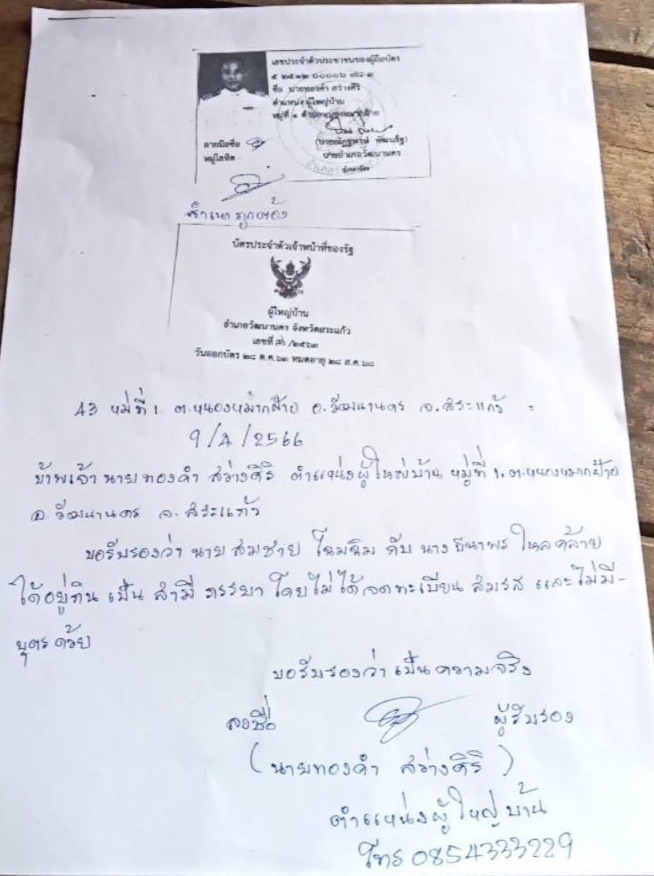 เลขประจำตัวประชาชนของผู้ถือบัตร
ชื่อ นายทองคำ สว่างศิริ
ตำแหน่ง ผู้ใหญ่บ้าน
หมู่ที่ ๑ ตำบลหนองหมากฝ้าย
ลายมือชื่อ
หมู่โลหิต
นายอำเภอวัฒนานคร
สำเนาถูกต้อง
บัตรประจำตัวเจ้าหน้าที่ของรัฐ
ผู้ใหญ่บ้าน
อำเภอวัฒนานคร จังหวัดสระแก้ว
เลขที่ /๒๕๖๓
วันออกบัตร ๒๘ ต.ค. ๖๓ หมดอายุ ๒๘ ส.ค. ๖๘
43 หมู่ที่ 1. ต.หนองหมากฝ้าย อ.วัฒนานคร จ.สระแก้ว
9/4/2566
ข้าพเจ้า นายทองคำ สว่างศิริ ตำแหน่งผู้ใหญ่บ้าน หมู่ที่ 1. ต.หนองหมากฝ้าย
อ.วัฒนานคร จ.สระแก้ว
ขอรับรองว่า นาย สมชาย โฉมฉิม กับ นาง ธีนาพร ไหลคล้าย
ได้อยู่กิน เป็น สามี ภรรยา โดยไม่ได้จดทะเบียน สมรส และไม่มี-
บุตรด้วย
ขอรับรองว่า เป็นความจริง
ลงชื่อ ผู้รับรอง
(นายทองคำ สว่างศิริ)
ตำแหน่งผู้ใหญ่บ้าน
โทร 0854333229